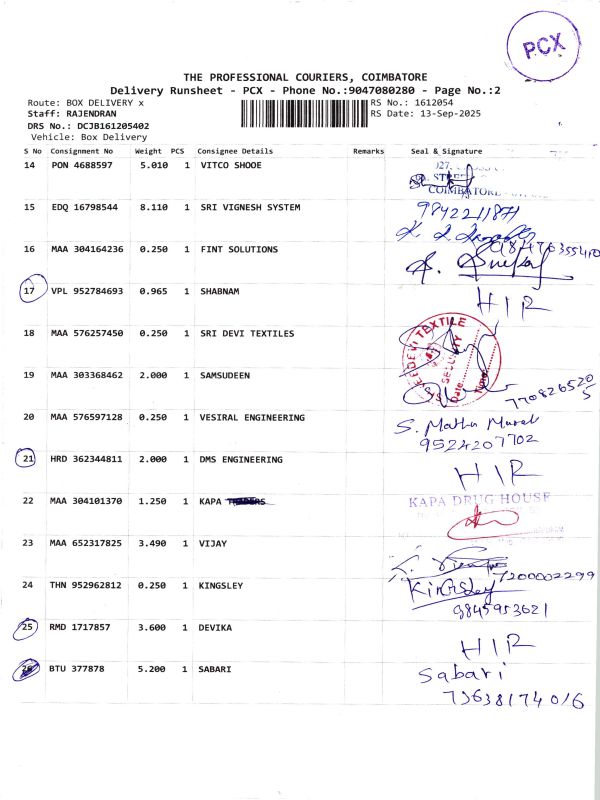 PCX
THE PROFESSIONAL COURIERS, COIMBATORE
Delivery Runsheet - PCX - Phone No.:9047080280 - Page No.:2
Route: BOX DELIVERY x RS No.: 1612054
Staff: RAJENDRAN RS Date: 13-Sep-2025
DRS No.: DCJB161205402
Vehicle: Box Delivery
S No Consignment No Weight PCS Consignee Details Remarks Seal & Signature
14 PON 4688597 5.010 1 VITCO SHOOE
COIMBATORE
15 EDQ 16798544 8.110 1 SRI VIGNESH SYSTEM
9842211871
16 MAA 304164236 0.250 1 FINT SOLUTIONS
17 VPL 952784693 0.965 1 SHABNAM
HIR
18 MAA 576257450 0.250 1 SRI DEVI TEXTILES
DEVI TEXTILE
SECURITY
Date
Time
19 MAA 303368462 2.000 1 SAMSUDEEN
20 MAA 576597128 0.250 1 VESIRAL ENGINEERING
9524207702
21 HRD 362344811 2.000 1 DMS ENGINEERING
HIR
22 MAA 304101370 1.250 1 KAPA
KAPA DRUG HOUSE
23 MAA 652317825 3.490 1 VIJAY
7200002299
24 THN 952962812 0.250 1 KINGSLEY
Kingsley
9845953621
25 RMD 1717857 3.600 1 DEVIKA
HIR
26 BTU 377878 5.200 1 SABARI
Sabari
73638174016